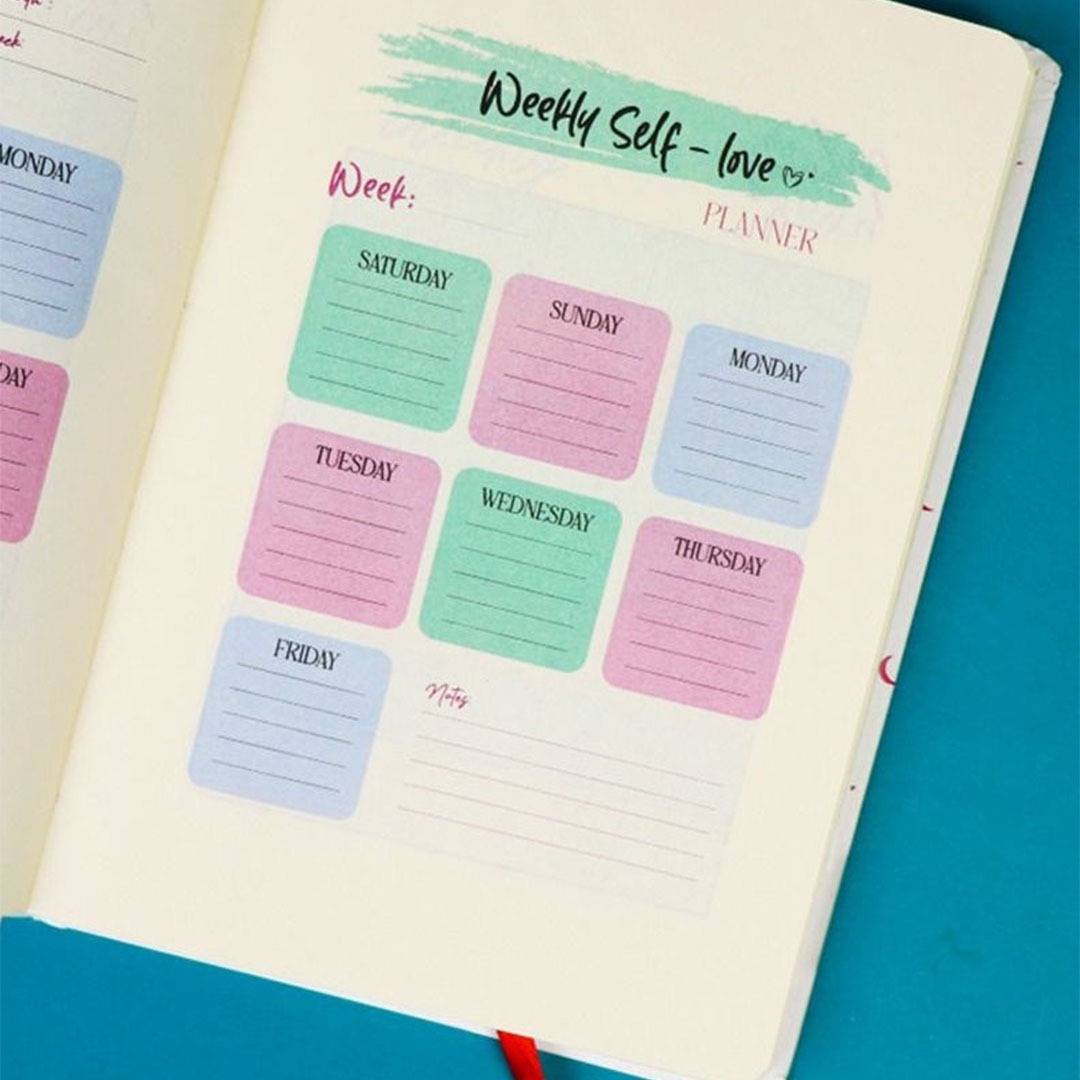 MONDAY
DAY
Weekly Self - love
PLANNER
Week:
SATURDAY
SUNDAY
MONDAY
TUESDAY
WEDNESDAY
THURSDAY
FRIDAY
Notes